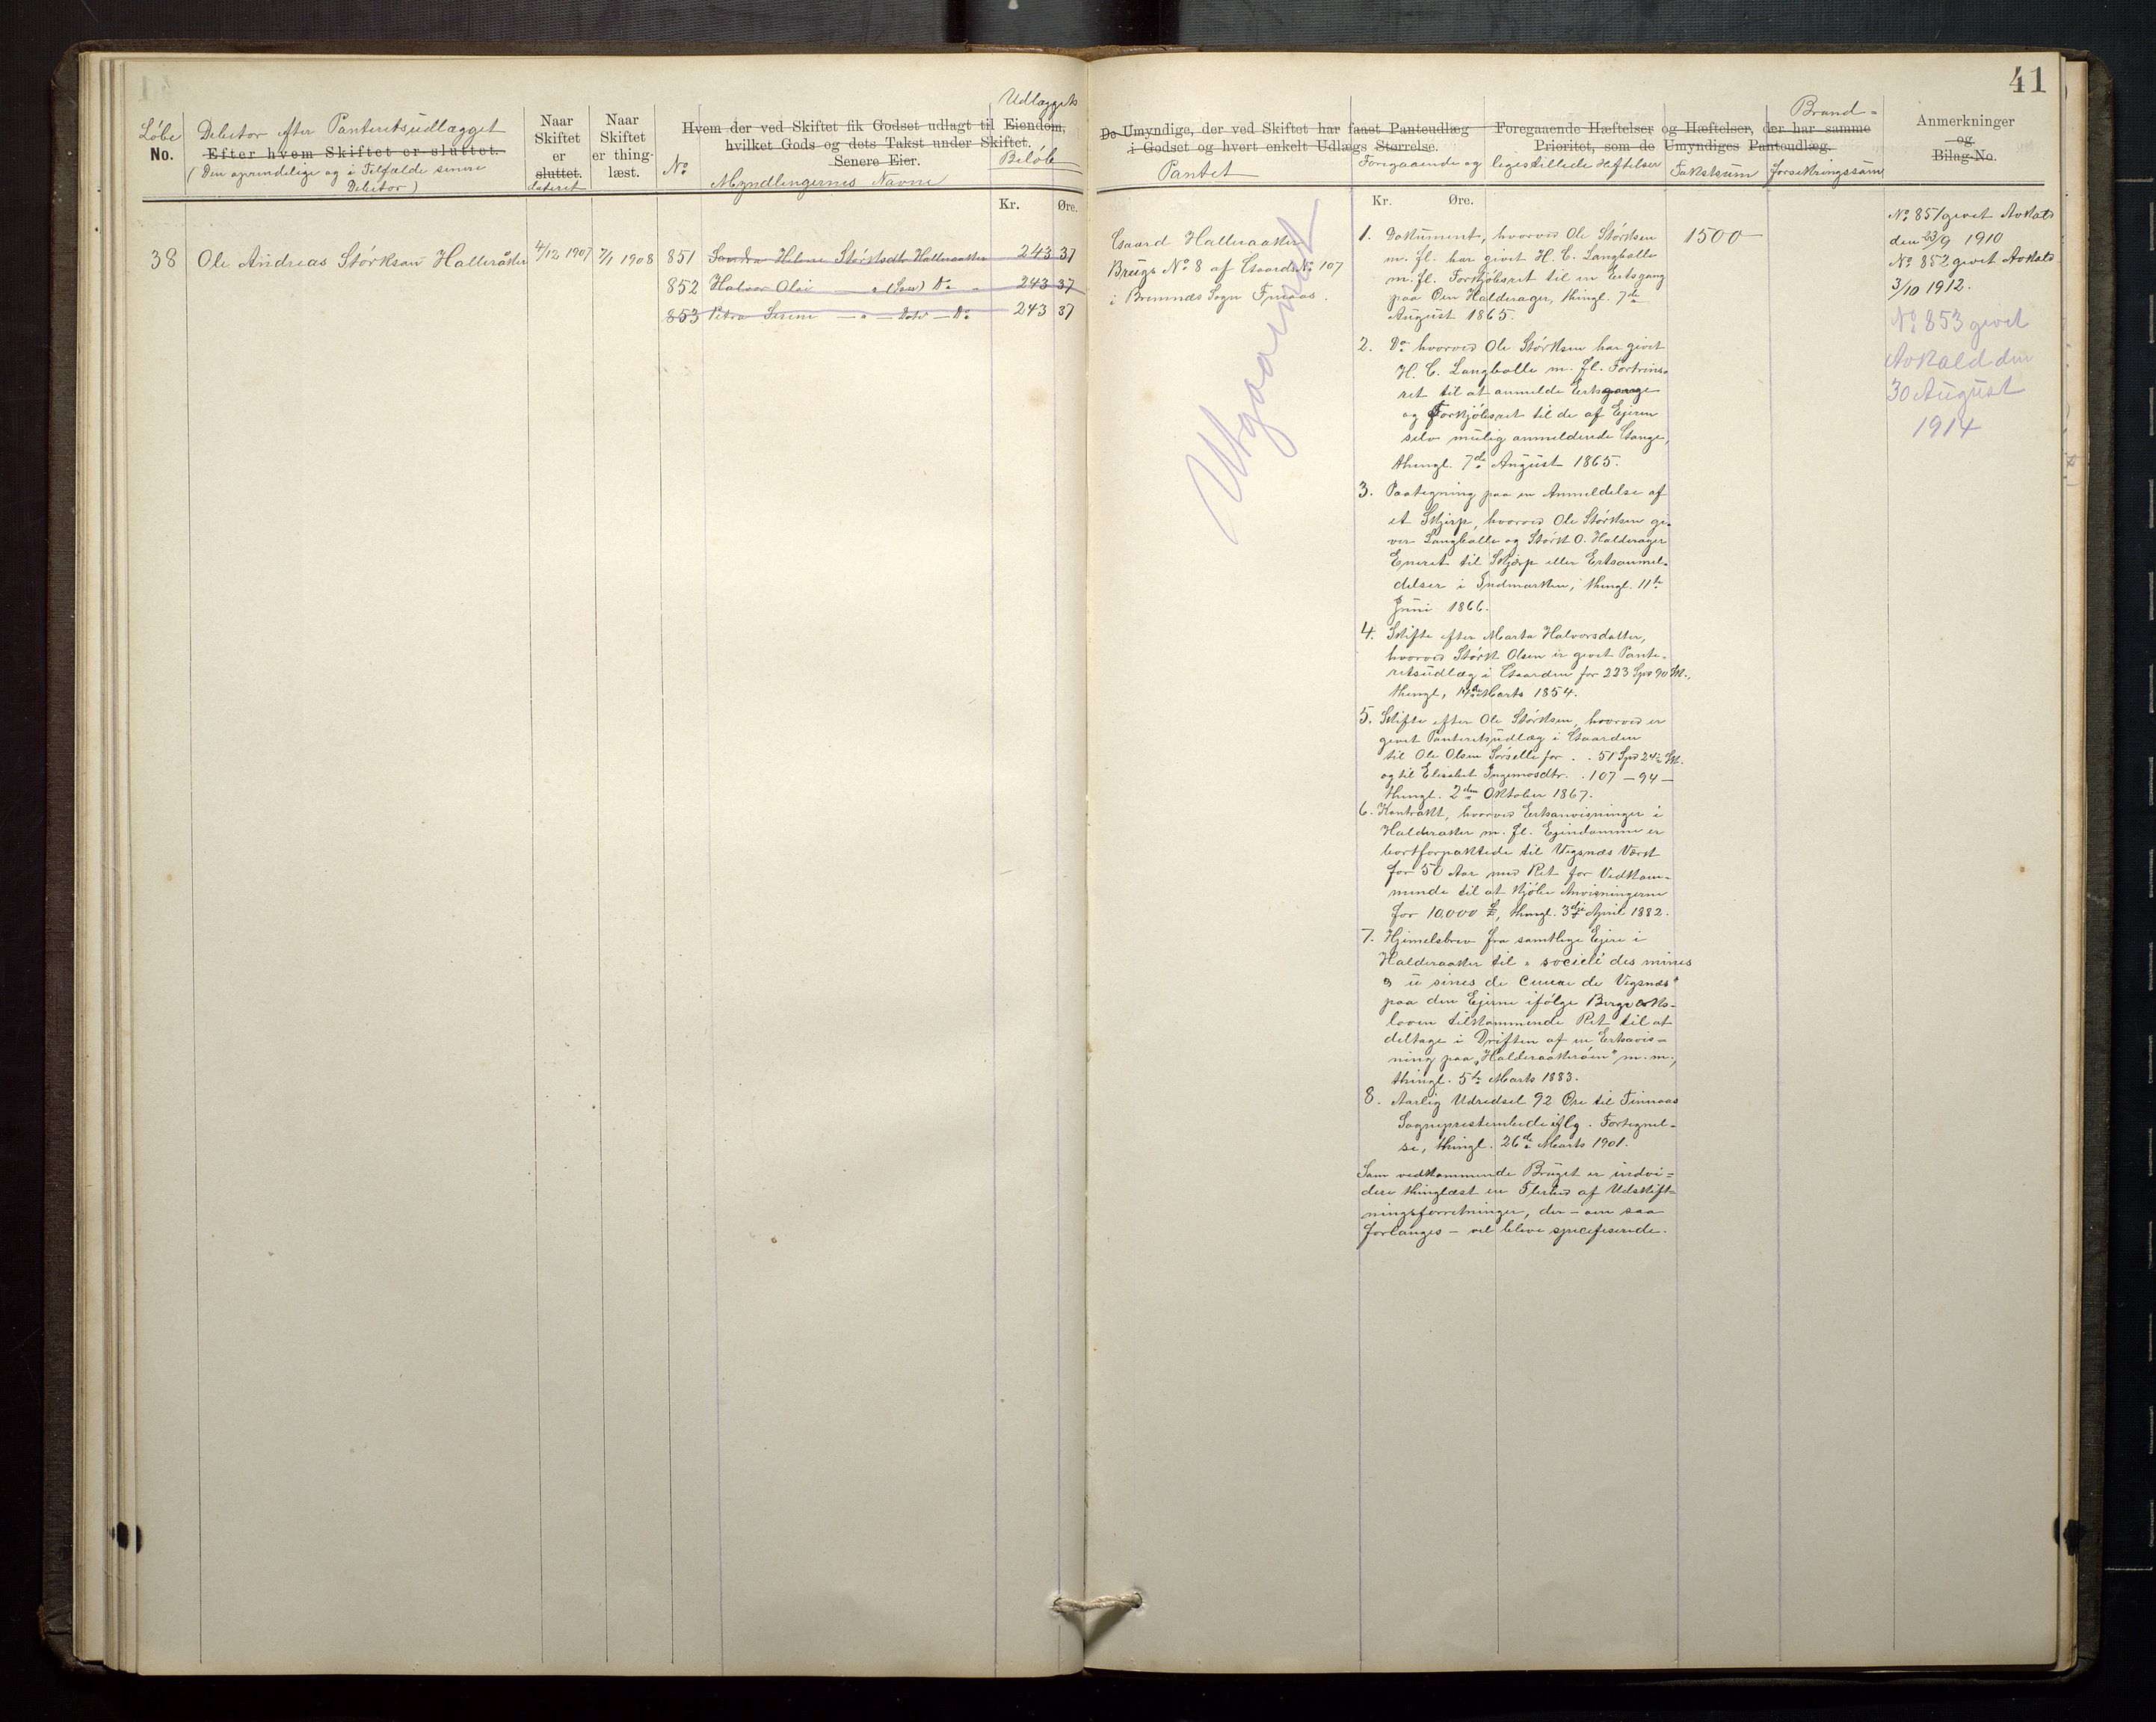 41
Løbe
No.
Debitor efter Panteretsudlægget
Efter hvem Skiftet er sluttet.
(Den oprindelige og i Tilfælde senere
Debitor)
Naar
Skiftet
er
sluttet.
dateret
Naar
Skiftet
er thing-
læst.
No
Hvem der ved Skiftet fik Godset udlagt til Eiendom,
hvilket Gods og dets Takst under Skiftet.
Senere Eier.
Myndlingernes Navne
Udlæggets
Beløb
Kr. Øre.
De Umyndige, der ved Skiftet har faaet Panteudlæg
i Godset og hvert enkelt Udlægs Størrelse.
Pantet
Foregaaende Hæftelser og Hæftelser, der har samme
Prioritet, som de Umyndiges Panteudlæg.
Foregaaende og ligestillede Heftelser
Kr. Øre.
Takstsum
Brand-
forsikringssum
Anmerkninger
og
Bilag-No.
38 Ole Andreas Størksen Halleraker 4/12 1907 7/1 1908 851 Sandra Helene Størksdtr Halleraaker 243 37
852 Halvor Olai — " (Søn) Do 243 37
853 Petra Serine — " — Datr — Do 243 37
Gaard Halleraaker
Brugs No 8 af Gaards No 107
i Bremnæs Sogn Finaas.
Utgaar
1. Dokument, hvorved Ole Størksen
m. fl. har givet H. C. Langballe
m. fl. Forkjøbsret til en Ertsgang
paa Øen Halderager, thingl. 7de
August 1865.
2. Do hvorved Ole Størksen har givet
H. C. Langballe m. fl. Fortrins-
ret til at anmelde Ertsgange
og Forkjøbsret til de af Ejeren
selv mulig anmeldende Gange,
thingl. 7de August 1865.
3. Paategning paa en Anmeldelse af
et Skjerp, hvorved Ole Størksen gi-
ver Langballe og Størk O. Halderager
Eneret til Skjerp eller Ertsanmel-
delser i Indmarken, thingl. 11te
Juni 1866.
4. Skifte efter Marta Halvorsdatter,
hvorved Størk Olsen er givet Pante-
retsudlæg i Gaarden for 223 Spd 90 Sk.,
thingl, Marts 1854.
5. Skifte efter Ole Størksen, hvorved er
givet Panteretsudlæg i Gaarden
til Ole Olsen Sørselle for . . 51 Spd 24 Sk.
og til Elisabet Ingemosdtr. . 107 — 94 —
thingl. 2den Oktober 1867.
6. Kontrakt, hvorved Ertsanvisninger i
Halderaaker m. fl. Ejendomme er
bortforpaktede til Vigsnæs Værk
for 50 Aar med Ret for Vedkom-
mende til at kjøbe Anvisningerne
for 10,000 £, thingl. 3die April 1882.
7. Hjemelsbrev fra samtlige Ejere i
Halderaaker til " societé des mines
& usines de Cuivre de Vigsnæs"
paa den Ejerne ifølge Bergværks-
loven tilkommende Ret til at
deltage i Driften af en Ertsavis-
ning paa "Halderaakerøen" m. m.,
thingl. 5te Marts 1883.
8. Aarlig Udredsel 92 Øre til Finnaas
Sogneprestembede iflg. Fortegnel-
se, thingl. 26de Marts 1901.
Som vedkommende Bruget er indvi-
dere thinglæst en Flerhed af Udskift-
ningsforretninger, der — om saa
forlanges — vil blive specifiserede.
1500
No 851 givet Avkald
den 23/9 1910
No 852 givet Avkald
3/10 1912.
No 853 givet
Avkald den
30 August
1914